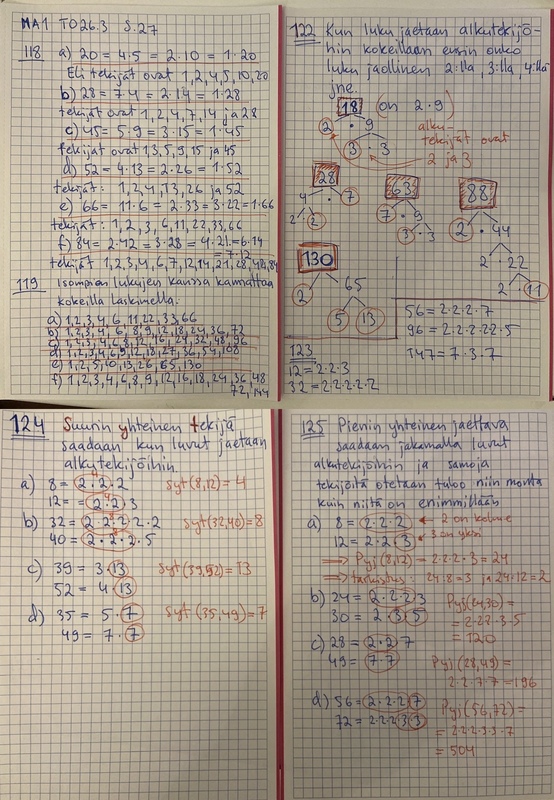 MA1 TO26.3 S.27
118 a) 20 = 4·5 = 2·10 = 1·20
Eli tekijät ovat 1, 2, 4, 5, 10, 20
b) 28 = 7·4 = 2·14 = 1·28
tekijät ovat 1, 2, 4, 7, 14 ja 28
c) 45 = 5·9 = 3·15 = 1·45
tekijät ovat 1, 3, 5, 9, 15 ja 45
d) 52 = 4·13 = 2·26 = 1·52
tekijät: 1, 2, 4, 13, 26 ja 52
e) 66 = 11·6 = 2·33 = 3·22 = 1·66
tekijät: 1, 2, 3, 6, 11, 22, 33, 66
f) 84 = 2·42 = 3·28 = 4·21 = 6·14
= 7·12
tekijät 1, 2, 3, 4, 6, 7, 12, 14, 21, 28, 42, 84
119 Isompien lukujen kanssa kannattaa
kokeilla laskimella.
a) 1, 2, 3, 4, 6, 11, 22, 33, 66
b) 1, 2, 3, 4, 6, 8, 9, 12, 18, 24, 36, 72
c) 1, 2, 3, 4, 6, 8, 12, 16, 24, 32, 48, 96
d) 1, 2, 3, 4, 6, 9, 12, 18, 27, 36, 54, 108
e) 1, 2, 5, 10, 13, 26, 65, 130
f) 1, 2, 3, 4, 6, 8, 9, 12, 16, 18, 24, 36, 48
72, 144
122 Kun luku jaetaan alkutekijöi-
hin kokeillaan ensin onko
luku jaollinen 2:lla, 3:lla, 4:llä
jne.
18 (on 2·9)
2 · 9
3 · 3
alku-
tekijät ovat
2 ja 3
28 63 88
4 · 7 7 · 9 2 · 44
2 · 2 3 · 3 2 · 22
2 · 11
130
2 · 65
5 13
56 = 2·2·2·7
96 = 2·2·2·22·5
147 = 7·3·7
123
12 = 2·2·3
32 = 2·2·2·2·2
124 Suurin yhteinen tekijä
saadaan kun luvut jaetaan
alkutekijöihin.
a) 8 = 2·2·2 syt(8,12) = 4
4
12 = 2·2·3
4
b) 32 = 2·2·2·2·2 syt(32,40) = 8
8
40 = 2·2·2·5
8
c) 39 = 3·13 syt(39,52) = 13
52 = 4·13
d) 35 = 5·7 syt(35,49) = 7
49 = 7·7
125 Pienin yhteinen jaettava
saadaan jakamalla luvut
alkutekijöihin ja samoja
tekijöitä otetaan tuloo niin monta
kuin niitä on enimmillään
a) 8 = 2·2·2 ← 2 on kolme
12 = 2·2·3 ← 3 on yksi
⇒ Pyj(8,12) = 2·2·2·3 = 24
⇒ tarkistus: 24:8 = 3 ja 24÷12 = 2
b) 24 = 2·2·2·3 Pyj(24,30) =
30 = 2·3·5 = 2·2·2·3·5
= 120
c) 28 = 2·2·7
49 = 7·7 Pyj(28,49) =
2·2·7·7 = 196
d) 56 = 2·2·2·7 Pyj(56,72) =
72 = 2·2·2·3·3 = 2·2·2·3·3·7
= 504